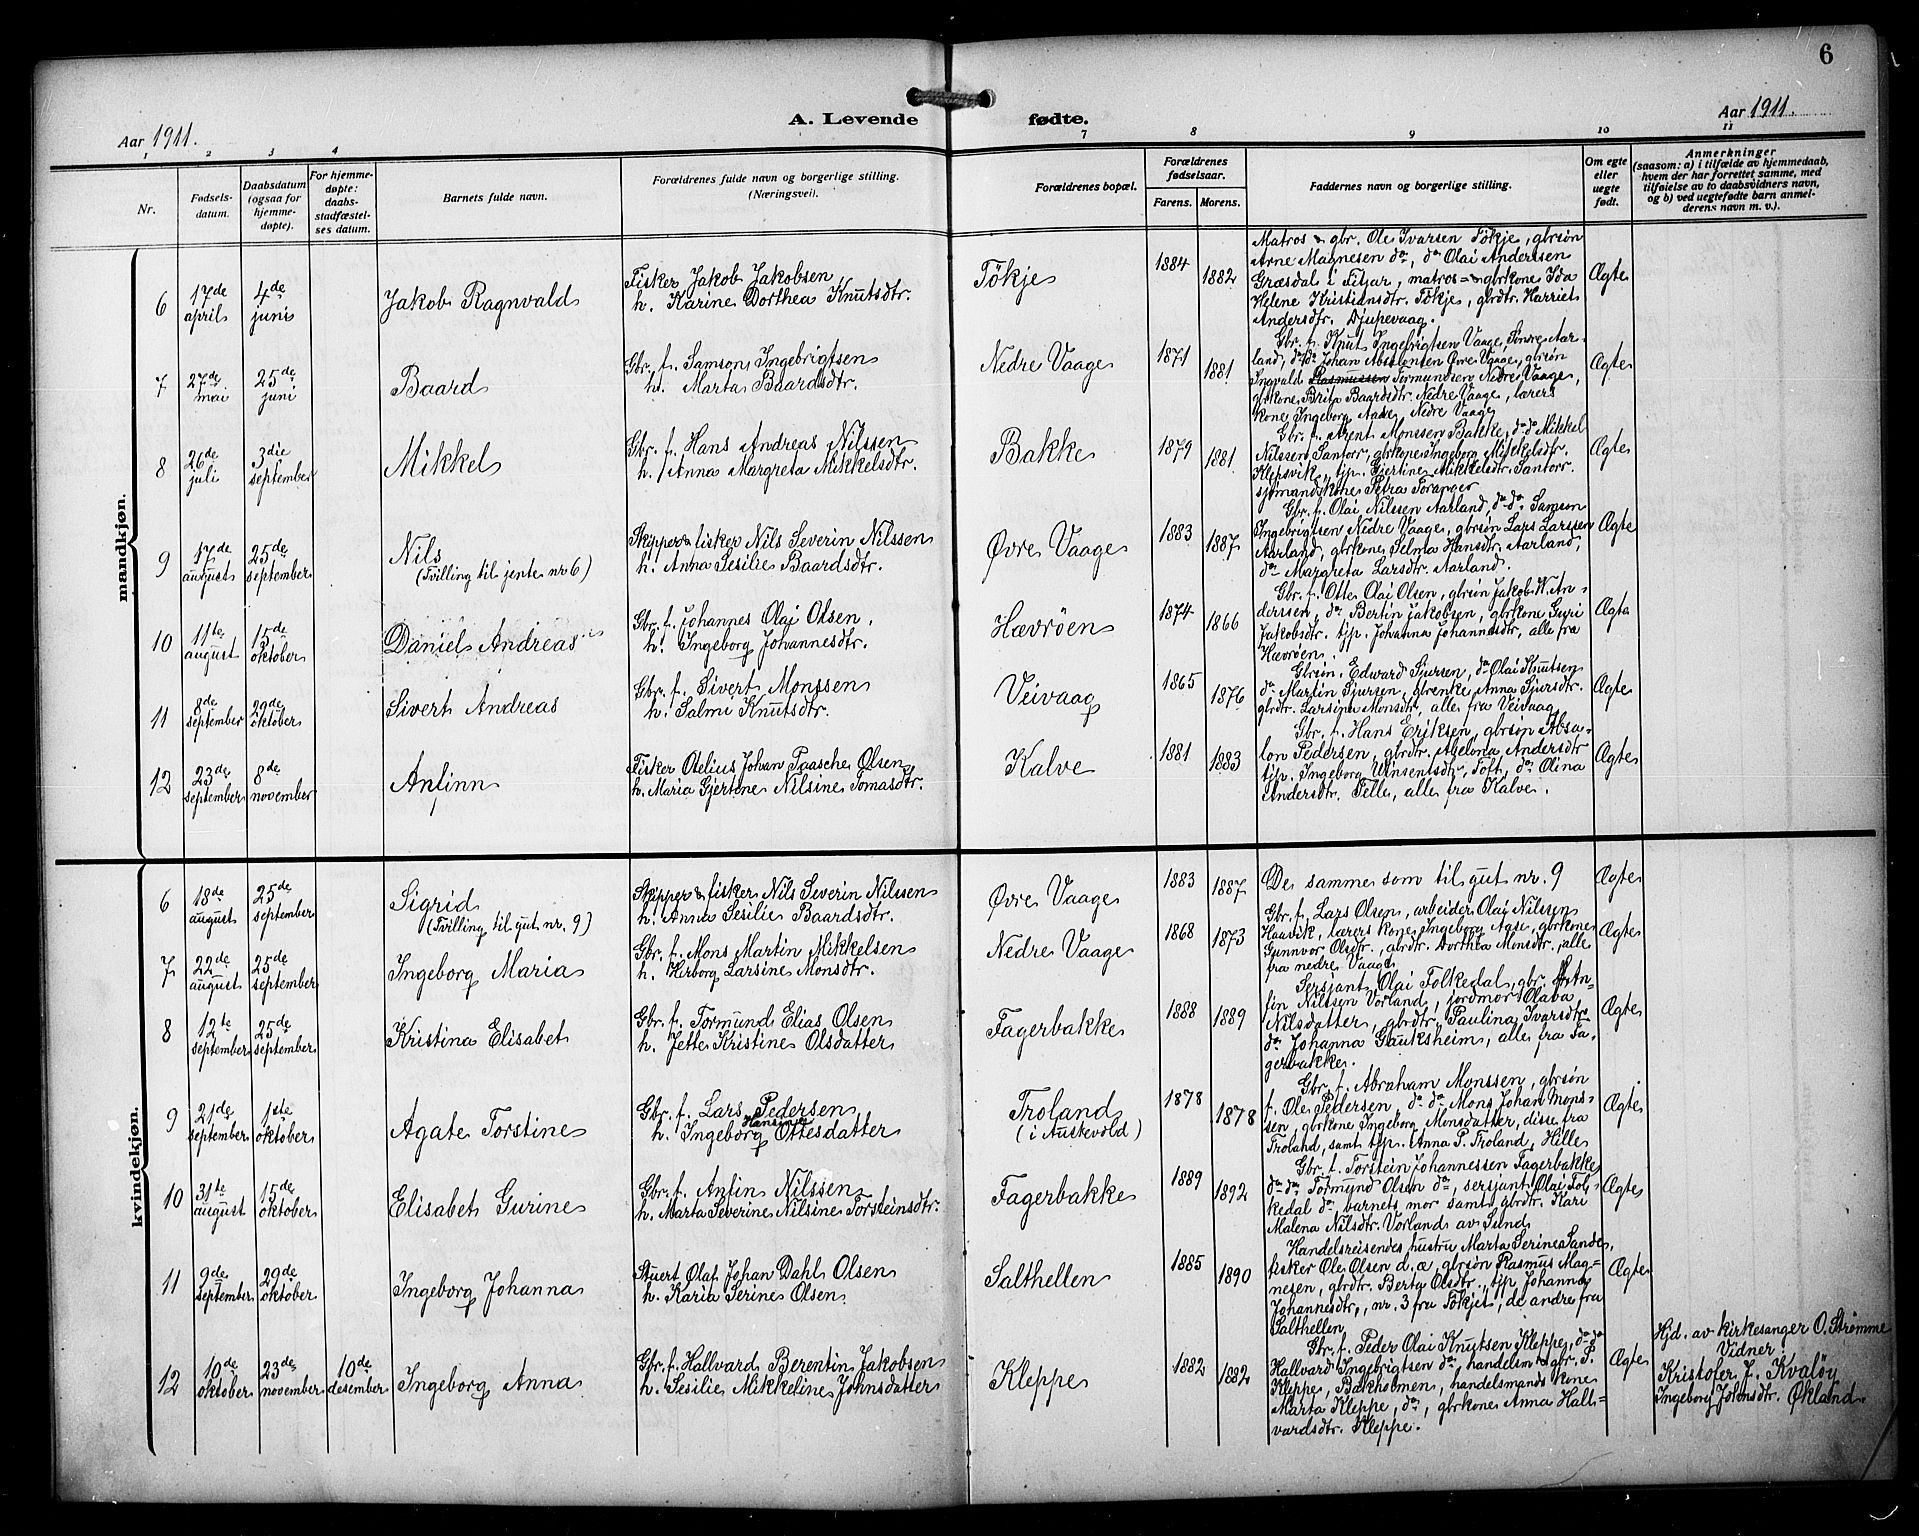 6
A. Levende fødte.
Aar 1911.
Aar 1911.
1 2 3 4 7 8 9 10 11
Nr.
Fødsels-
datum.
Daabsdatum
(ogsaa for
hjemme-
døpte).
For hjemme-
døpte:
daabs-
stadfæstel-
ses datum.
Barnets fulde navn.
Forældrenes fulde navn og borgerlige stilling.
(Næringsvei).
Forældrenes bopæl.
Forældrenes
fødselsaar.
Farens. Morens.
Faddernes navn og borgerlige stilling.
Om egte
eller
uegte
født.
Anmerkninger
(saasom: a) i tilfælde av hjemmedaab,
hvem der har forrettet samme, med
tilføielse av to daabsvidners navn,
og b) ved uegtefødte barn anmel-
derens navn m. v.).
mandkjøn.
6
17de
april
4de
juni
Jakob Ragnvald
Fisker Jakob Jakobsen
h. Karine Dorthea Knutsdtr.
Tökje
1884
1882
Matros & gbr. Ole Ivarsen Tökje, gbrsön
Arne Magnesen do, do Olai Andersen
Græsdal i Fitjar, matros= gbrkone Ida
Helene Kristiansdtr. Tökje, gbrdtr. Harriet
Andersdtr. Djupevaag.
Ægte
7
27de
mai
25de
juni
Baard
Gbr. f. Samson Ingebrigtsen
h. Marta Baardsdtr.
Nedre Vaage
1871
1881
Gbr. f. Knut Ingebrigtsen Vaage, Søndre Aar-
land, do do Johan Absalonsen Øvre Vaage, gbrsön
Ingvald Rasmussen Tormundsen Nedre Vaage,
gbrkone Brita Baardsdtr. Nedre Vaage, lærers
kone Ingeborg Aase Nedre Vaage
Ægte
8
26de
juli
3die
september
Mikkel
Gbr. f. Hans Andreas Nilssen
h. Anna Margreta Mikkelsdtr.
Bakke
1879
1881
Gbr. f. Arent Monssen Bakke, do do Mikkel
Nilssen Santorr, gbrkone Ingeborg Mikkelsdtr.
Klepsvik, tjp. Gjertine Mikkelsdtr. Santorr
sjømandskone Petra Toranger
Ægte
9
17de
august
25de
september
Nils
(Tvilling til jente nr 6)
Skipper & fisker Nils Severin Nilssen
h. Anna Sesilie Baardsdtr.
Øvre Vaage
1883
1887
Gbr. f. Olai Nilssen Aarland, do do Samson
Ingebrigtsen Nedre Vaage, gbrsön Lars Larssen
Aarland, gbrkone Selma Hansdtr. Aarland,
do Margreta Larsdtr. Aarland.
Ægte
10
11te
august
15de
oktober
Daniel Andreas
Gbr. f. Johannes Olai Olsen.
h. Ingeborg Johannesdtr.
Hævröen
1874
1866
Gbr. f. Otte Olai Olsen, gbrsön Jakob W. An-
derssen, do Bertin Jakobsen, gbrkone Guri
Jakobsdtr. tjp. Johanna Johannesdtr, alle fra
Hævröen.
Ægte
11
8de
september
29de
oktober
Sivert Andreas
Gbr. f. Sivert Monssen
h. Salmi Knutsdtr.
Veivaag
1865
1876
Gbrsön. Edvard Sjursen, do Olai Knutsen
do Martin Sjursen, gbrenke Anna Sjursdtr.
gbrdtr. Larsina Monsdtr, alle fra Veivaag
Ægte
12
23de
september
8de
november
Anfinn
Fisker Otelius Johan Paasche Olsen
h. Maria Gjertine Nilsine Tomasdtr.
Kalve
1881
1883
Gbr. f. Hans Eriksen, gbrsön Absa-
lon Pedersen, gbrdtr. Abelona Andersdtr
tjp. Ingeborg Winsentsdtr, Toft, do Olina
Andersdtr. Telle, alle fra Kalve.
Ægte
kvindekjøn.
6
18de
august
25de
september
Sigrid
(Tvilling til gut nr. 9)
Skipper & fisker Nils Severin Nilssen
h. Anna Sesilie Baardsdtr.
Øvre Vaage
1883
1887
De samme som til gut nr. 9
Ægte
7
22de
august
25de
september
Ingeborg Maria
Gbr. f. Mons Martin Mikkelsen
h. Herborg Larsine Monsdtr.
Nedre Vaage
1868
1873
Gbr. f. Lars Olsen, arbeider Olai Nilssen
Haavik, lærers kone Ingeborg Aase, gbrkone
Gunnvor Olsdtr., gbrdtr. Dorthea Monsdtr, alle
fra nedre Vaage
Ægte
8
12te
september
25de
september
Kristina Elisabet
Gbr. f. Tormund Elias Olsen
h. Jette Kristine Olsdatter
Fagerbakke
1888
1889
Sersjant Olai Folkedal, gbr. f. An-
fin Nilssen Vorland, jordmor Olava
Nilsdatter, gbrdtr. Paulina Ivarsdtr
do Johanna Gauksheim, alle fra Fa-
gerbakke.
Ægte
9
21de
september
1ste
oktober
Agate Torstine
Gbr. f. Lars Pedersen
h. Ingeborg Hansine Ottesdatter
Troland
(i Austevold)
1878
1878
Gbr. f. Abraham Monssen, gbrsön
f. Ole Pedersen, do do Mons Johan Mons-
sen, gbrkone Ingeborg Monsdatter, disse fra
Troland, samt tjp. Anna P. Troland, Hille
Ægte
10
31te
august
15de
oktober
Elisabet Gurine
Gbr. f. Anfin Nilssen
h. Marta Severine Nilsine Torsteinsdtr.
Fagerbakke
1889
1892
Gbr. f. Torstein Johannessen Fagerbakke
do do Tormund Olsen do, sersjant Olai Fol-
kedal do barnets mor samt gbrdtr. Kari
Malena Nilsdtr. Vorland av Sund
Ægte
11
9de
september
29de
oktober
Ingeborg Johanna
Stuert Olaf Johan Dahl Olsen
h. Karia Serine Olsen
Salthellen
1885
1890
Handelsreisendes hustru Marta Serine Sande,
fisker Ole Olsen d.æ, gbrsön Rasmus Mag-
nesen, gbrdtr. Berta Olsdtr., tjp Johanna
Johannesdtr., nr. 3 fra Tökje, de andre fra
Salthellen
Ægte
12
10de
oktober
23de
november
10de
desember
Ingeborg Anna
Gbr. f. Hallvard Berentin Jakobsen
h. Sesilie Mikkeline Johnsdatter
Kleppe
1882
1882
Gbr. f. Peder Olai Knutsen Kleppe, do do
Hallvard Ingebrigtsen do, handelsm. & gbr. P.
Kleppe, Bakholmen, handelsmands kone
Marta Kleppe, do, gbrkone Anna Hall-
vardsdtr. Kleppe.
Ægte
Hjd. av kirkesanger O. Strømme
Vidner
Kristofer J. Kvaløy
Ingeborg Johnsdtr. Økland.